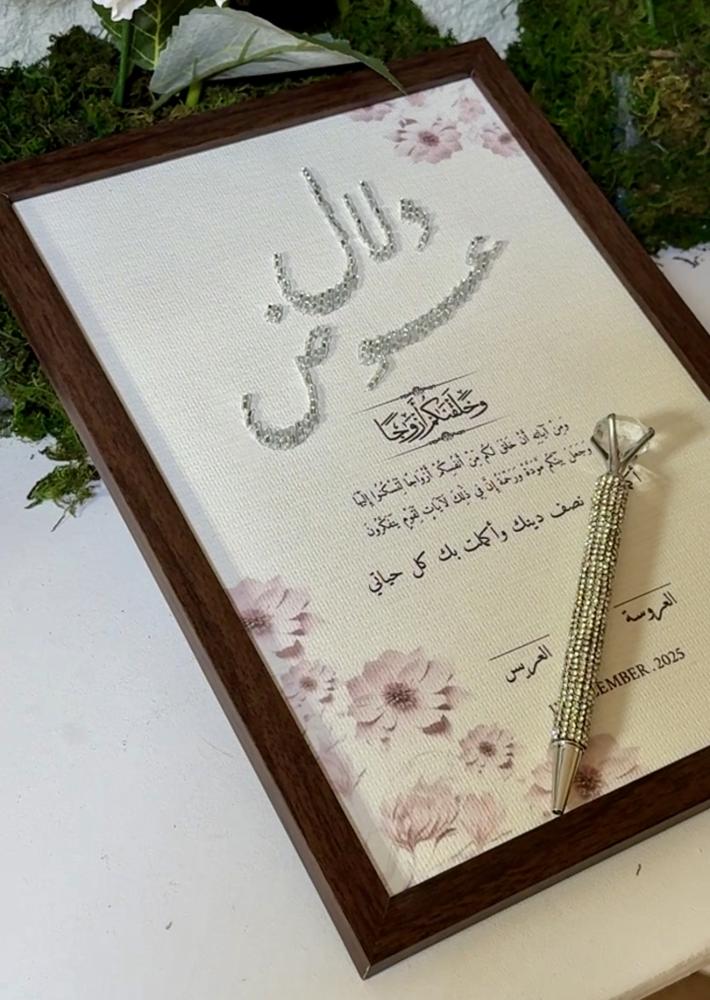 دلال
عوض
وَخَلَقْنَاكُمْ أَزْوَاجًا
وَمِنْ آيَاتِهِ أَنْ خَلَقَ لَكُم مِّنْ أَنفُسِكُمْ أَزْوَاجًا لِّتَسْكُنُوا إِلَيْهَا
وَجَعَلَ بَيْنَكُم مَّوَدَّةً وَرَحْمَةً إِنَّ فِي ذَلِكَ لَآيَاتٍ لِّقَوْمٍ يَتَفَكَّرُونَ
نصف دينك وأكملت بك كل حياتي
العروسة
العريس
EMBER .2025